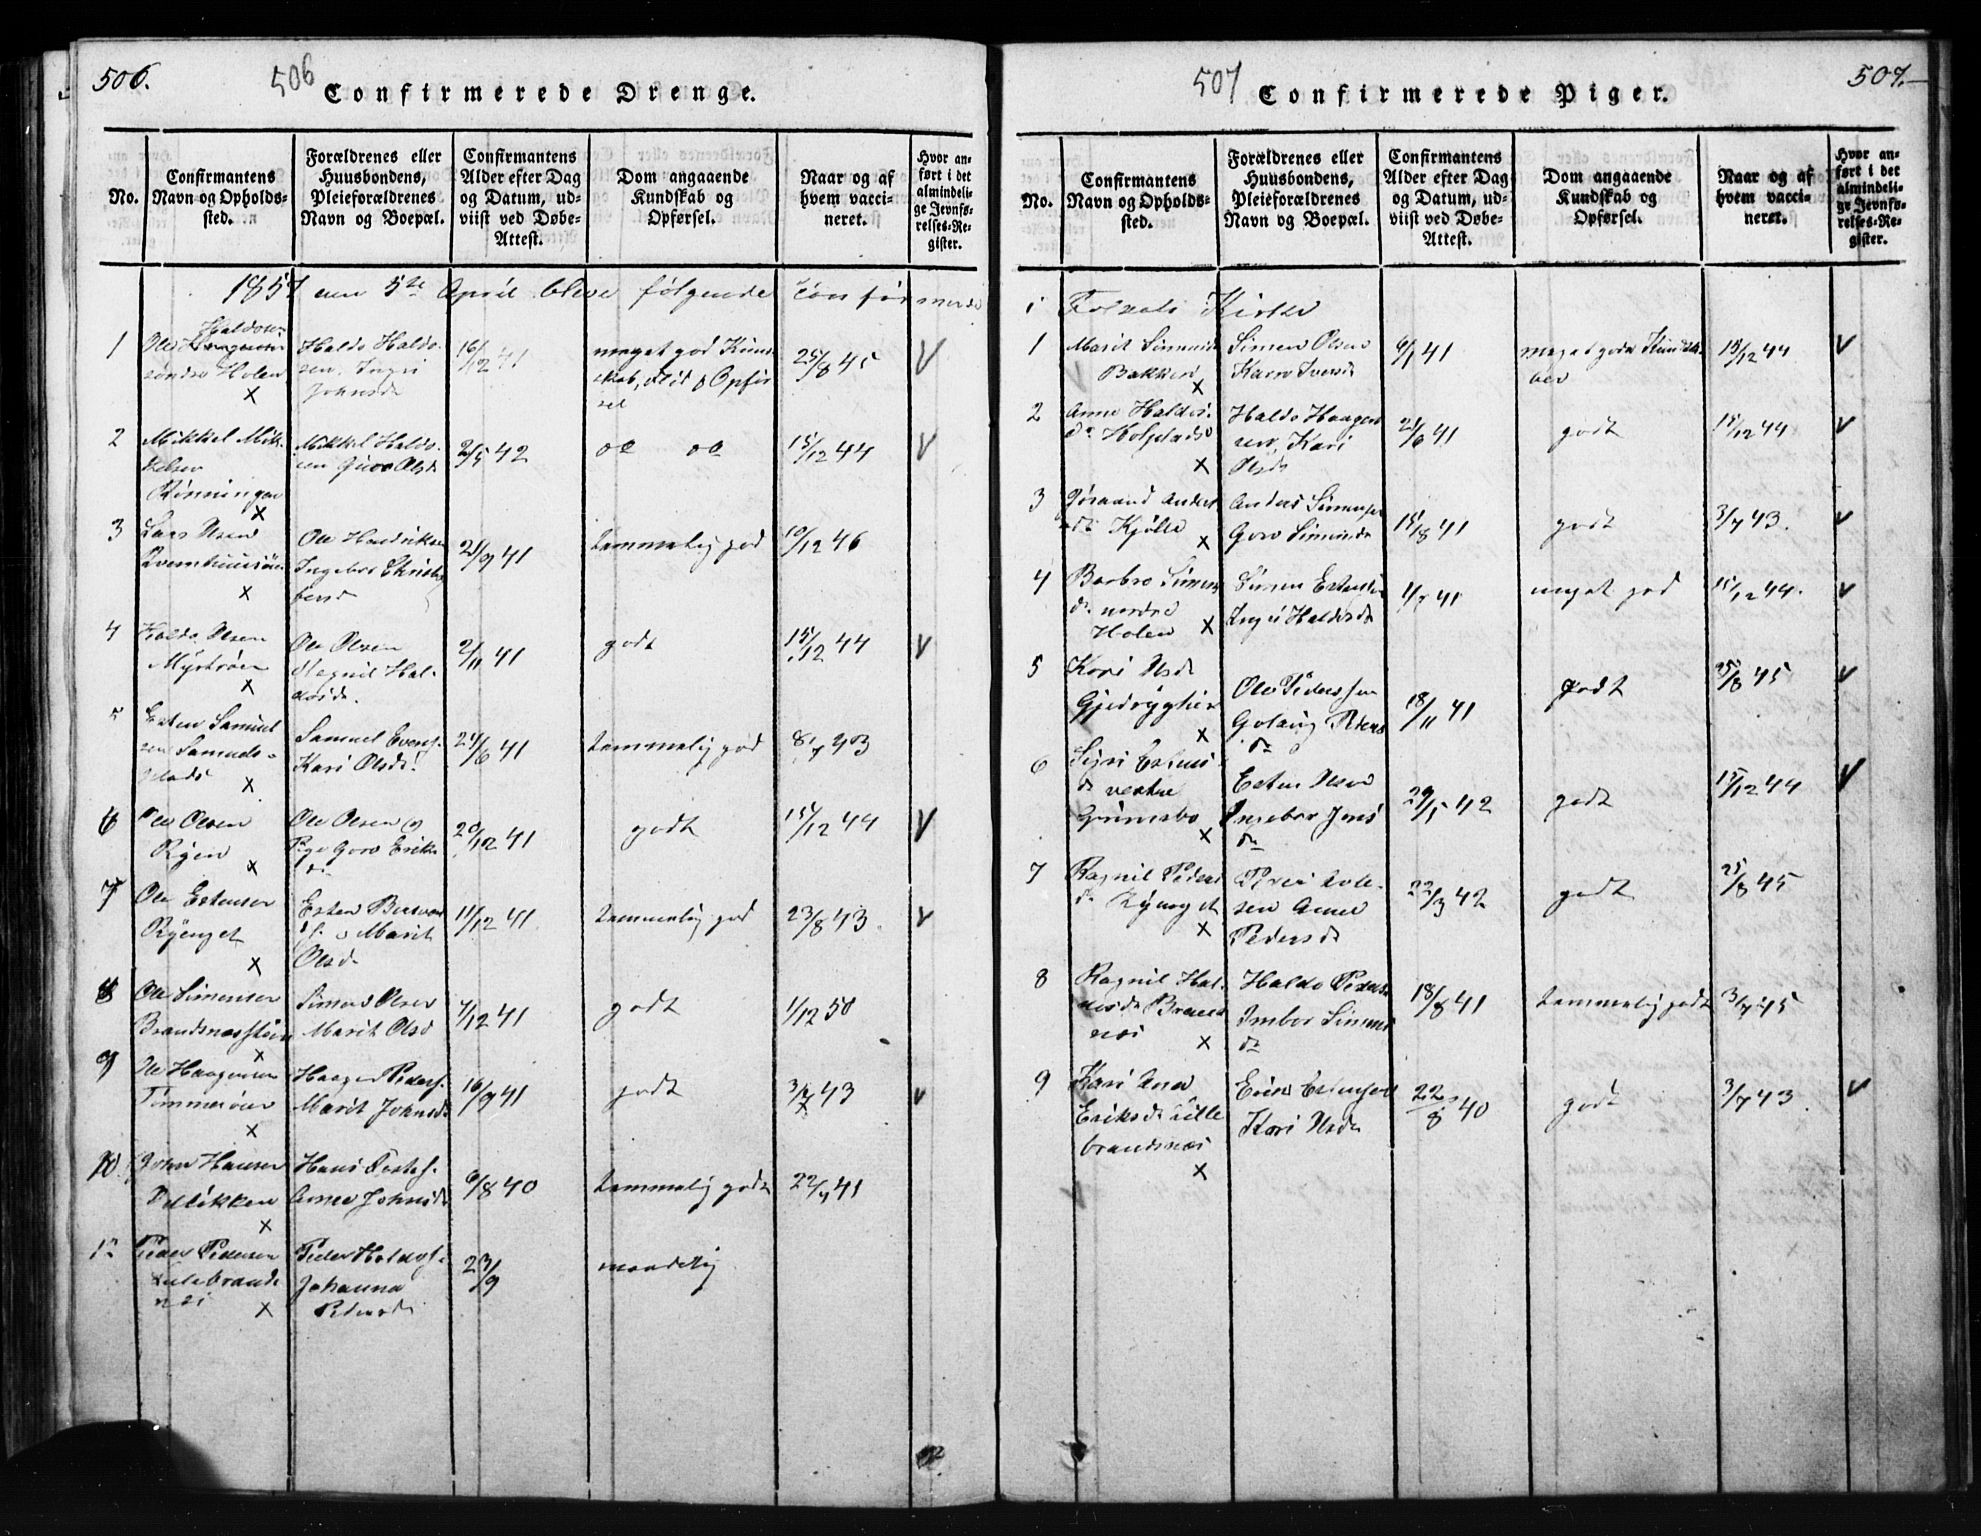 506.
506
Confirmerede Drenge.
No.
Confirmantens Navn og Opholds-sted.
Forældrenes eller Huusbondens, Pleieforældrenes Navn og Boepæl.
Confirmantens Alder efter Dag og Datum, ud-viist ved Døbe-Attest.
Dom angaaende Kundskab og Opførsel.
Naar og af hvem vacci-neret.
Hvor an-ført i det almindeli-ge Jevnfø-relses-Re-gister.
1857 den 5te April bleve følgende Confirmerede
1
Ole Haldosen
søndre Holen
x
Haldo Haldo-
sen, Ingri
Johnsd
16/12 41
meget god Kund-
skab, Flid & Opfør
sel
25/8 45
V
2
Mikkel Mik-
kelsen
Rønningen
x
Mikkel Haldo-
sen Guro Olsd
2/5 42
do do
15/12 44
V
3
Lars Olsen
x
Ole Hendriksen
Ingebor Christof
fersd
21/9 41
temmelig god
10/12 46
4
Haldo Olsen
Myrtrøen
x
Ole Olsen
Magnil Hal-
dosd.
2/11 41
godt
15/12 44
V
5
Esten Samuel
sen Samuels-
plads
x
Samuel Evens.
Kari Olsd.
24/6 41
temmelig god
8/7 43
6
Ole Olsen
Ryen
x
Ole Olsen og
Pige Goro Eriks
d.
20/12 41
godt
15/12 44
V
7
Ole Estensen
Ryenget
x
Esten
Marit
Olsd.
11/12 41
temmelig god
23/8 43.
V
8
Ole Simensen
Brandsnesstein
x
Simen Olsen
Marit Olsd
7/12 41
godt
1/12 50
9
Ole Haagensen
Tømmerøien
x
Haagen Peders.
Marit Johnsd
16/9 41
godt
3/7 43
V
10
John Hansen
x
Hans
Anne Johnsd
6/8 40
temmelig godt
22/7 41
Peder Pedersen
Lillebrands
nes
x
Peder
Johanna
Pedersd.
23/9
maadelig
507.
507
Confirmerede Piger.
No.
Confirmantens Navn og Opholds-sted.
Forældrenes eller Huusbondens, Pleieforældrenes Navn og Boepæl.
Confirmantens Alder efter Dag og Datum, ud-viist ved Døbe-Attest.
Dom angaaende Kundskab og Opførsel.
Naar og af hvem vacci-neret.
Hvor an-ført i det almindeli-ge Jevnfø-relses-Re-gister.
i Foldals Kirke
1
Marit Simensd
Bakken
x
Simen Olsen
Karen Iversd
6/1 41
Meget gode Kundska
ber
15/12 44
V
2
Anne Haldos-
d.
x
Haldo Haagen
sen, Kari
Olsd.
21/6 41
godt
15/12 44
V
3
Jøraand Anders
d. Kjølle
x
Anders Simensen
Goro Simensd.
15/8 41
godt
3/7 43.
V
4
Barbro Simens
d. nordre
Holen
x
Simen Estensen
Ingri Haldosd.
1/7 41
meget god
15/12 44.
V
5
Kari Olsd.
Gjedryghien
x
Ole Pederssen
Golaug Peders
d.
18/11 41
godt
25/8 45
V
6
Sigri Estens-
d. vestre
Grimsbo
x
Esten Olsen
Ingebor Jens
d.
29/5 42
godt
15/12 44
V
7
Ragnil Peders
d. Ryenget
x
Peder
sen Anne
Pedersd.
22/3 42
godt
25/8 45
8
Ragnil Hal-
dosd. Brands
nes
x
Haldo Peders.
Imbor Simens
d.
18/8 41
temmelig godt
3/7 45
9
Kari Ane
Eriksd. Lille
brandsnes
x
Erik Estensen
Kari Olsd.
22/8 40
godt
3/7 43.
V